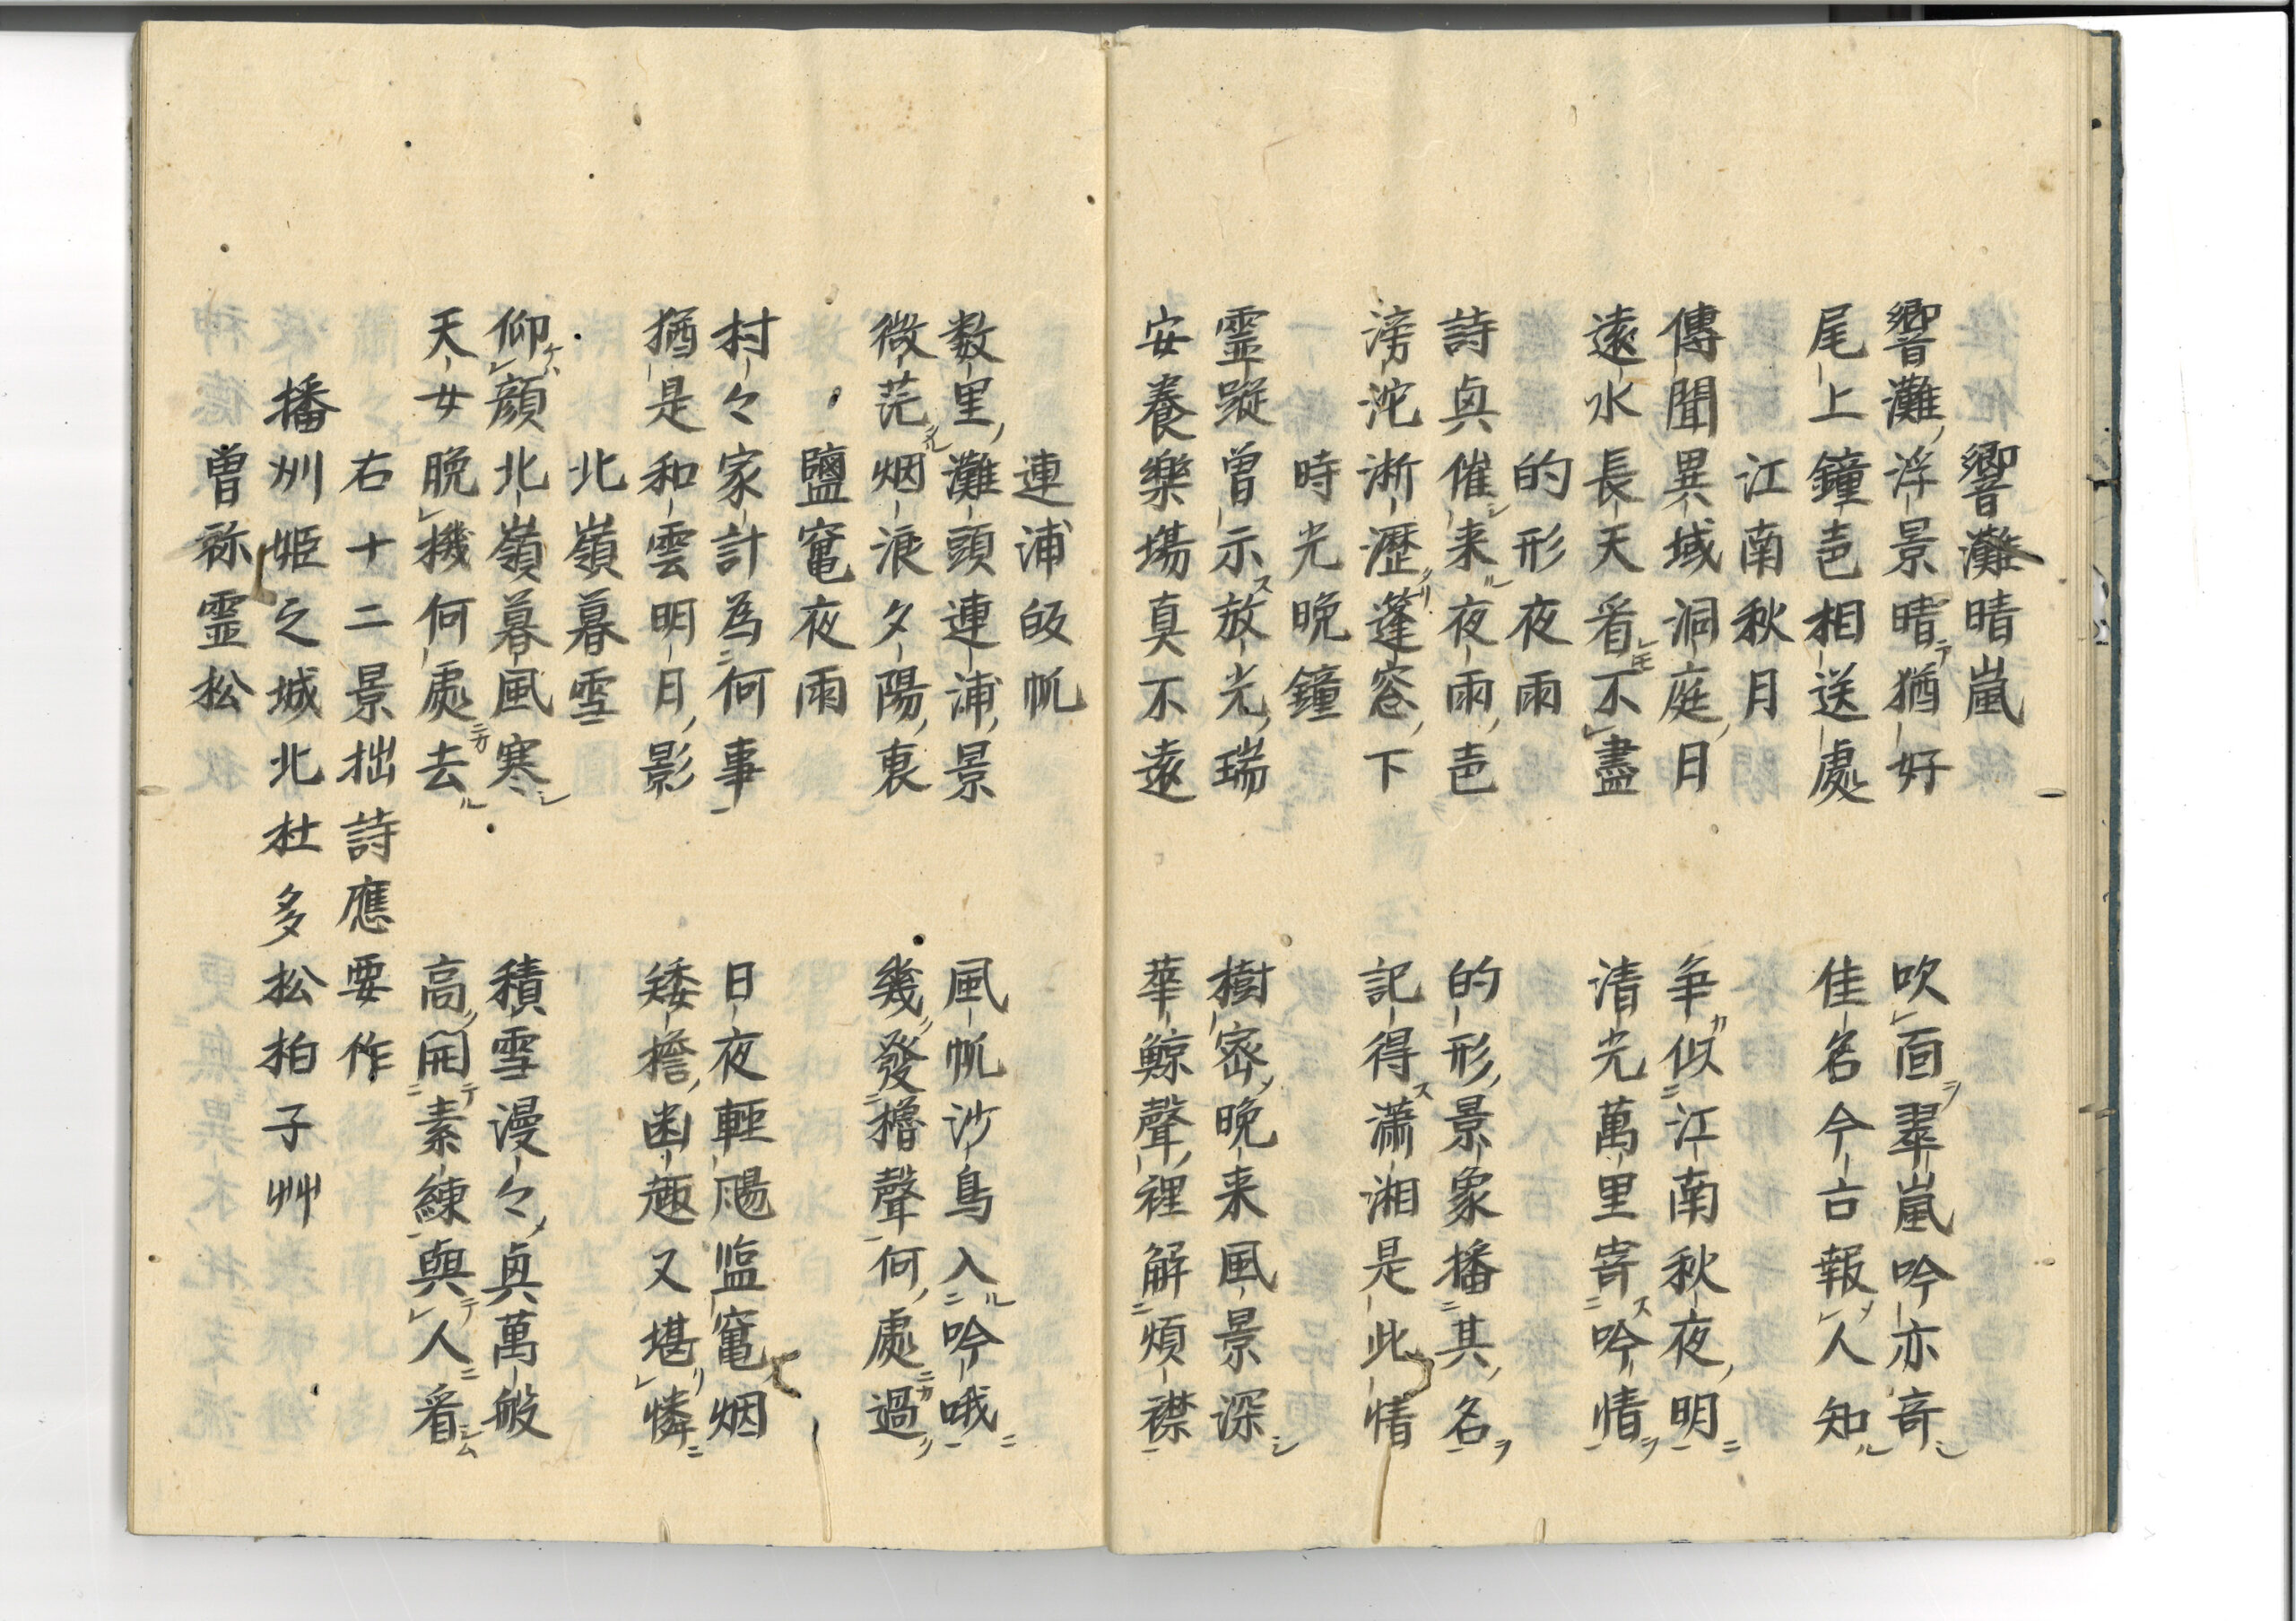 響灘晴嵐
響灘浮景晴猶好　吹面翠嵐吟亦奇
尾上鐘声相送處　佳名今古報人知
江南秋月
傳聞異域洞庭日　争似江南秋夜明
遠水長天看不盡　清光萬里寄吟情
的形夜雨
詩興催来夜雨声　的形景象播其名
滂沱淅瀝蓬窓下　記得瀟湘是此情
時光晩鐘
霊蹤曽示放光瑞　樹密晩来風景深
安養樂場真不遠　華鯨聲裡解煩襟
連浦皈帆
数里灘頭連浦景　風帆沙鳥入吟哦
微茫烟浪夕陽裏　幾發櫓聲何處過
鹽竃夜雨
村々家計為何事　日夜輕颺塩竃烟
猶是和雲明月影　矮檐幽趣又堪憐
北嶺暮雪
仰顔北嶺暮風寒　積雪漫々興萬般
天女脱機何處去　高開素練與人看
右十二景拙詩應要作
播州姫之城北杜多松柏子艸
曽祢霊松